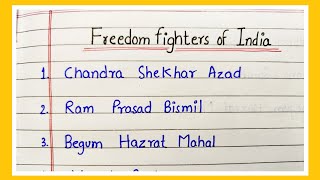 Freedom fighters of India
1. Chandra Shekhar Azad
2. Ram Prasad Bismil
3. Begum Hazrat Mahal